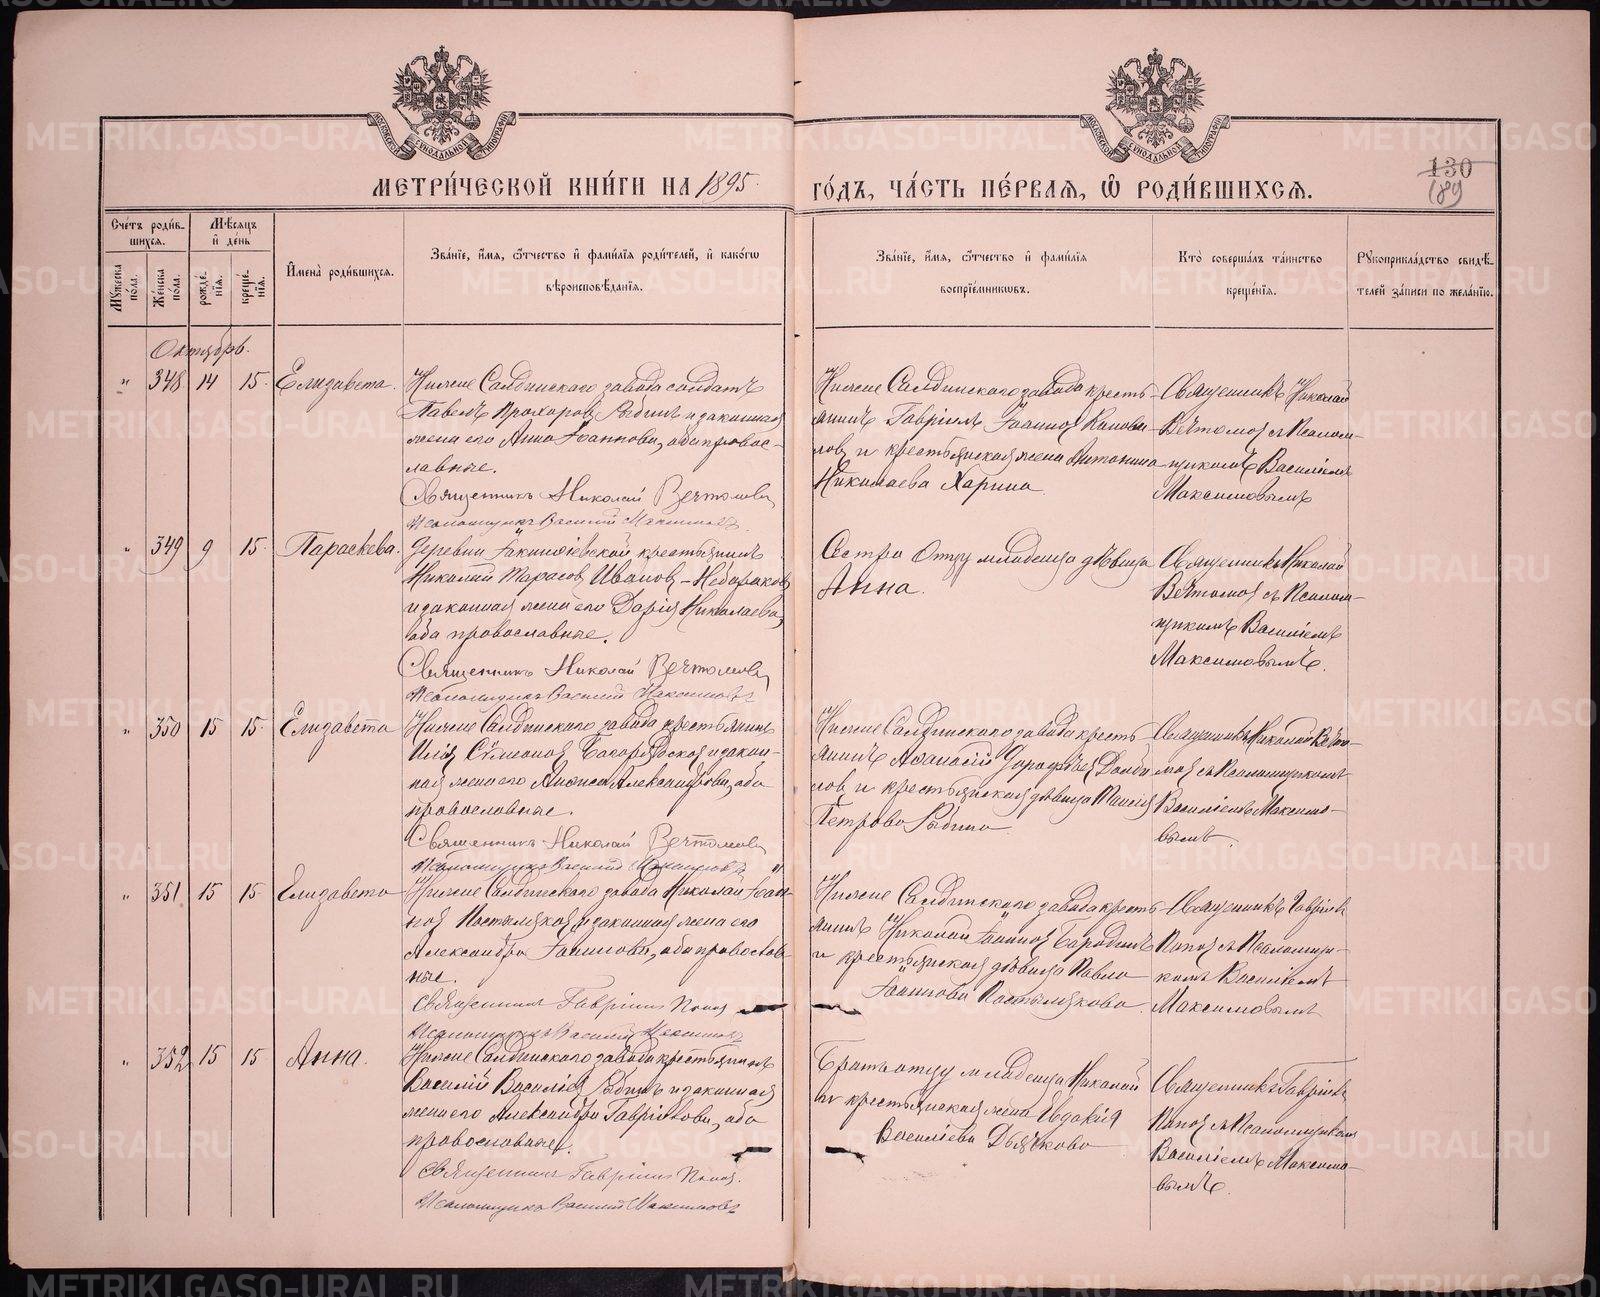 МЕТРИ́ЧЕСКОЙ КНИ́ГИ НА 1895.
ГО́ДЪ, ЧА́СТЬ ПЕ́РВАѦ, Ѽ РОДИ́ВШИХСѦ.
130
189
Сче́тъ роди́в-
шихсѧ.
Мѣ́сѧцъ
и҆ де́нь
Мꙋ́жеска
по́ла.
Же́нска
по́ла.
рожде́-
нїѧ.
креще́-
нїѧ.
И҆мена̀ роди́вшихсѧ.
Зва́нїе, и҆́мѧ, ѻ҆́тчество и҆ фами́лїѧ роди́телей, и҆ како́гѡ
вѣроисповѣ́данїѧ.
Зва́нїе, и҆́мѧ, ѻ҆́тчество и҆ фами́лїѧ
воспрїе́мникѡвъ.
Кто̀ соверша́лъ та́инство
креще́нїѧ.
Рꙋкоприкла́дство свидѣ́-
телей за́писи по жела́нїю.
Октябрь.
" 348 14 15. Елизавета.
Нижне Салдинскаго завода солдатъ
Павелъ Прохоровъ Рыбинъ и законная
жена его Анна Іоаннова, оба правос-
лавные.
Священникъ Николай Вечтомовъ
Псаломщикъ Василій Максимовъ.
Нижне Салдинскаго завода кресть-
янинъ Гавріилъ Іоанновъ
и крестьянская жена Антонина
Николаева Харина.
Священникъ Николай
Вечтомовъ съ Псалом-
щикомъ Василіемъ
Максимовымъ
" 349 9 15. Параскева.
Деревни Іакинѳіевской крестьянинъ
Николай Тарасовъ Ивановъ-
и законная жена его Дарія Николаева,
оба православные.
Священникъ Николай Вечтомовъ
Псаломщикъ Василій Максимовъ
Сестра Отцу младенца дѣвица
Анна.
Священникъ Николай
Вечтомовъ съ Псалом-
щикомъ Василіемъ
Максимовымъ.
" 350 15 15. Елизавета
Нижне Салдинскаго завода крестьянинъ
Илія Стефановъ и закон-
ная жена его Александрова, оба
православные.
Священникъ Николай Вечтомовъ
Псаломщикъ Василій Максимовъ
Нижне Салдинскаго завода кресть-
янинъ Аѳанасій Дорофѣевъ
и крестьянская дѣвица
Петрова Рыбина.
Священникъ Николай Вечто-
мовъ съ Псаломщикомъ
Василіемъ Максимо-
вымъ.
" 351 15 15 Елизавета
Нижне Салдинскаго завода Николай Іоан-
новъ Постыляковъ и законная жена его
Александра Іоаннова, оба православ-
ные.
Священникъ Гавріилъ Поповъ
Псаломщикъ Василій Максимовъ
Нижне Салдинскаго завода кресть-
янинъ Николай Іоанновъ Бородинъ
и крестьянская дѣвица Павла
Іоаннова Постылякова.
Священникъ Гавріилъ
Поповъ съ Псаломщи-
комъ Василіемъ
Максимовымъ
" 352 15 15 Анна.
Нижне Салдинскаго завода крестьянинъ
Василій Василіевъ Рыбинъ и законная
жена его Александра Гавріилова, оба
православные.
Священникъ Гавріилъ Поповъ.
Псаломщикъ Василій Максимовъ
Братъ отцу младенца Николай
и крестьянская жена Евдокія
Василіева Дьячкова
Священникъ Гавріилъ
Поповъ съ Псаломщикомъ
Василіемъ Максимо-
вымъ.